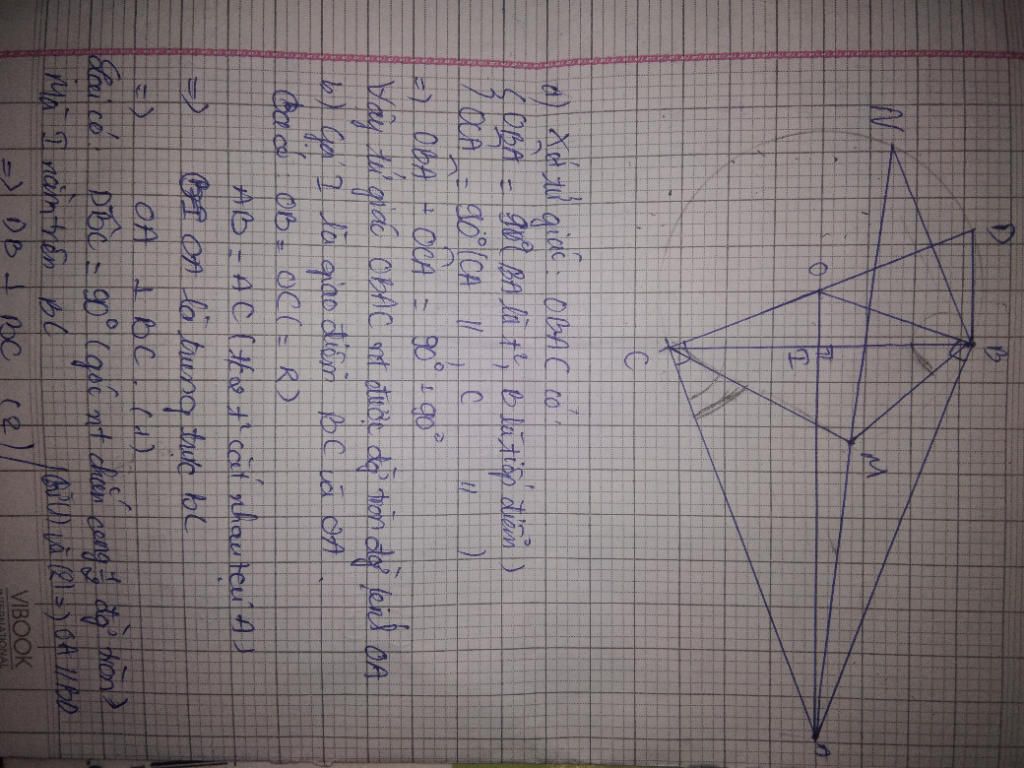 N
D
O
B
C
I
M
A
a) Xét tứ giác OBAC có
{ OBA = 90° (BA là t², B là tiếp điểm)
OCA = 90° (CA // , C // )
=) OBA + OCA = 90° + 90°
Vậy tứ giác OBAC nt được đg tròn đg kính OA
b) Gọi I là giao điểm BC và OA.
Ta có: OB = OC (= R)
AB = AC (t/c 2 t² cắt nhau tại A)
=) OA là trung trực BC
=) OA ⊥ BC. (1)
Lại có: DBC = 90° (góc nt chắn cung ½ đg tròn)
Mà I nằm trên BC
=) DB ⊥ BC (2)
Từ (1) và (2) =) OA // BD
VIBOOK